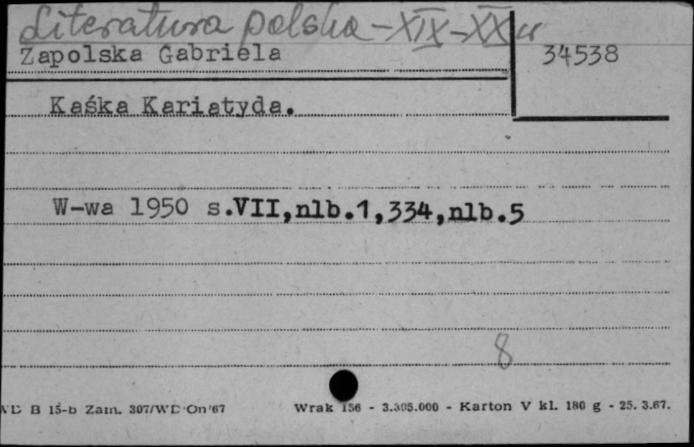 Literatura polska - XIX - XX w
Zapolska Gabriela
34538
Kaśka Kariatyda.
W-wa 1950 s.VII,nlb.1,334,nlb.5
8
B 15-b Zam. 307/WD On'67 Wrak 156 - 3.305.000 - Karton V kl. 180 g - 25. 3.67.